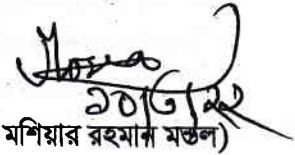 ১০/৩/২২
মশিয়ার রহমান মন্ডল)